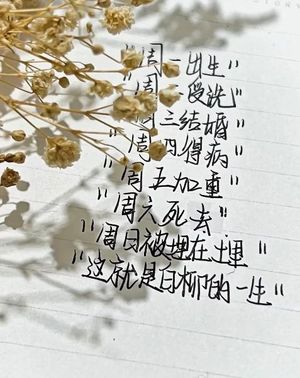 "周一出生"
"周受洗"
周三结婚"
"周四得病"
"周五加重"
"周六死去"
"周日被埋在土里"
"这就是白柳的一生"